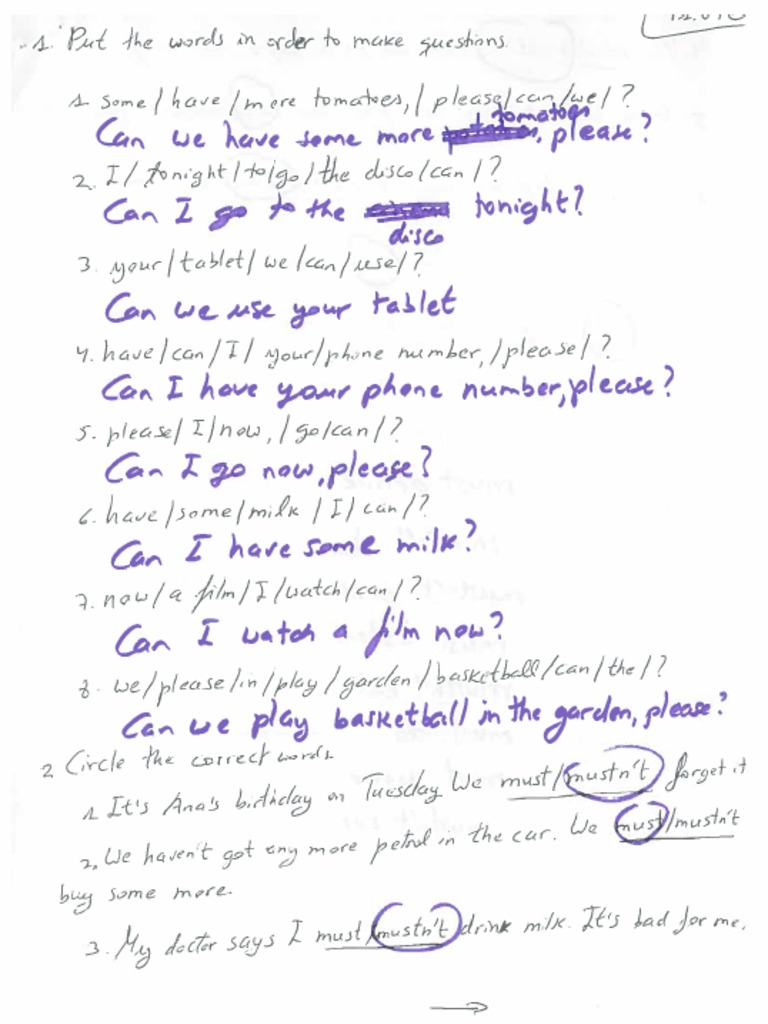 1. Put the words in order to make questions.
1. some/have/more tomatoes,/please/can/we/?
tomatoes
Can we have some more potatoes, please?
2. I/tonight/to/go/the disco/can/?
Can I go to the cinema tonight?
disco
3. your/tablet/we/can/use/?
Can we use your tablet
4. have/can/I/your/phone number,/please/?
Can I have your phone number, please?
5. please/I/now,/go/can/?
Can I go now, please?
6. have/some/milk/I/can/?
Can I have some milk?
7. now/a film/I/watch/can/?
Can I watch a film now?
8. we/please/in/play/garden/basketball/can/the/?
Can we play basketball in the garden, please?
2 Circle the correct words.
1. It's Ana's birthday on Tuesday. We must/mustn't forget it
2. We haven't got any more petrol in the car. We must/mustn't
buy some more.
3. My doctor says I must/mustn't drink milk. It's bad for me.